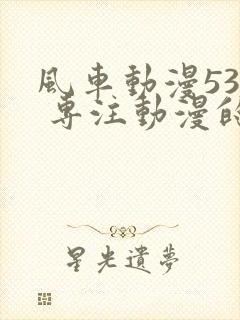 風車動漫53
專注動漫的
星光遺夢